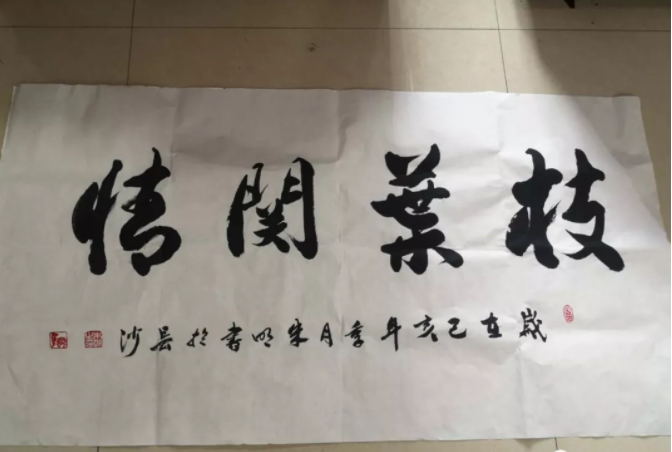 枝葉関情
歲在己亥年季月朱明書於長沙